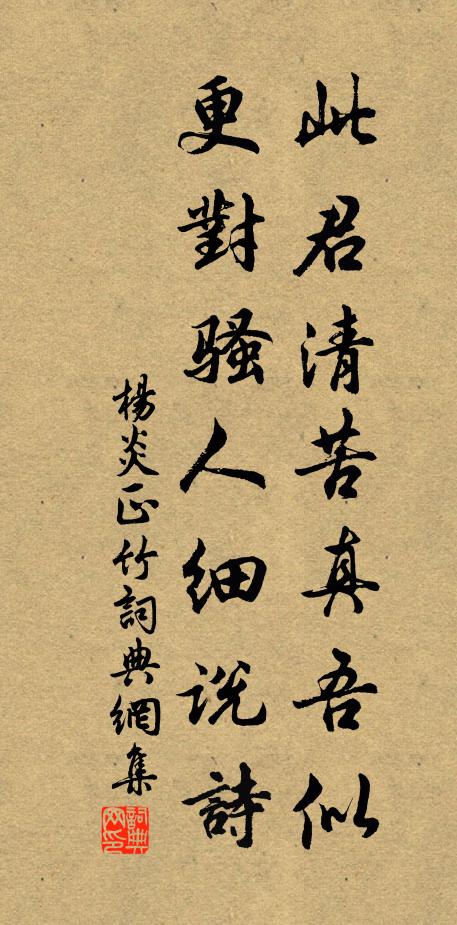 此君清苦真吾似
更對骚人细说詩
楊炎正竹詞典網集
詞典网印